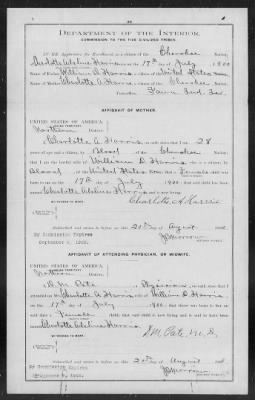 DEPARTMENT OF THE INTERIOR.
COMMISSION TO THE FIVE CIVILIZED TRIBES.
IN RE Application for Enrollment, as a citizen of the Cherokee Nation,
Charlotte Adeline Harris, born on the 17th day of July, 1900
Name of Father: William D. Harris a citizen of the United States Nation.
Name of Mother: Charlotte A. Harris a citizen of the Cherokee Nation.
Postoffice
AFFIDAVIT OF MOTHER.
UNITED STATES OF AMERICA,
INDIAN TERRITORY,
Northern District.
I, Charlotte A. Harris, on oath state that I am 28
years of age and a citizen by Blood, of the Cherokee Nation;
that I am the lawful wife of William D. Harris, who is a citizen, by
of the United States; that a Female child
was born to me on 17th day of July, 1900; that said child has been
named Charlotte Adeline Harris, and is now living.
Charlotte A Harris
Subscribed and sworn to before me this 20th day of August
My Commission Expires
September
AFFIDAVIT OF ATTENDING PHYSICIAN, OR MIDWIFE.
UNITED STATES OF AMERICA,
INDIAN TERRITORY,
Northern District.
I, Pate, a Physician, on oath state that I
attended on Charlotte A. Harris, wife of William D. Harris
on the 17 day of July, that there was born to her on said
date a Female child; that said child is now living and is said to have been
named Charlotte Adeline Harris.
Pate, M.D.
Subscribed and sworn to before me this 20th day of August
My Commission Expires